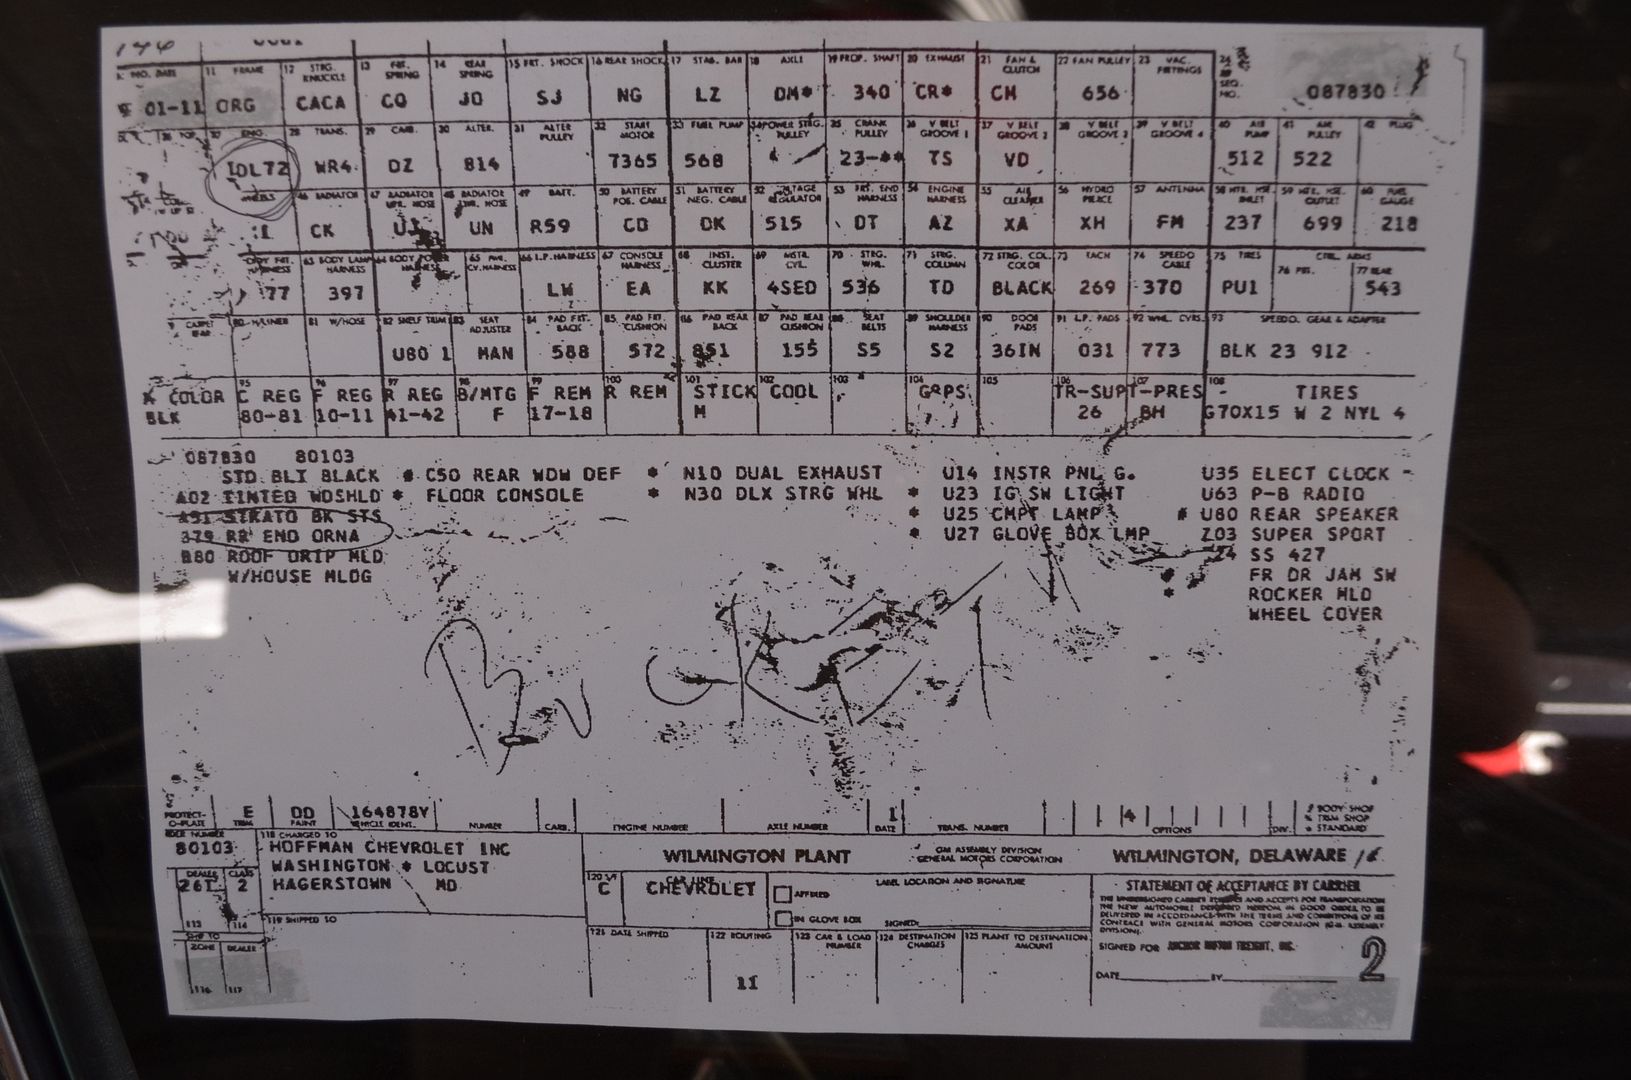 11 FRAME 12 STRG. KNUCKLE 13 FRT. SPRING 14 REAR SPRING 15 FRT. SHOCK 16 REAR SHOCK 17 STAB. BAR 18 AXLE 19 PROP. SHAFT 20 EXHAUST 21 FAN & CLUTCH 22 FAN PULLEY 23 VAC. FITTINGS SEQ. NO.
01-11 ORG CACA CO JO SJ NG LZ DM* 340 CR* CM 656 087830
ENG. 28 TRANS. 29 CARB. 30 ALTER. 31 ALTER PULLEY 32 START MOTOR 33 FUEL PUMP 34 POWER STRG. PULLEY 35 CRANK PULLEY 36 V BELT GROOVE 1 37 V BELT GROOVE 2 38 V BELT GROOVE 3 39 V BELT GROOVE 4 40 AIR PUMP 41 AIR PULLEY 42 PLUG
IDL72 WR4 DZ 814 7365 568 23-** TS VD 512 522
WHEELS 46 RADIATOR 47 RADIATOR UPR. HOSE 48 RADIATOR LWR. HOSE 49 BATT. 50 BATTERY POS. CABLE 51 BATTERY NEG. CABLE 52 VOLTAGE REGULATOR 53 FRT. END HARNESS 54 ENGINE HARNESS 55 AIR CLEANER 56 HYDRO PIERCE 57 ANTENNA 58 HTR. HSE. INLET 59 HTR. HSE. OUTLET 60 FUEL GAUGE
CK UJ UN R59 CD DK 515 DT AZ XA XH FM 237 699 218
BODY FRT. HARNESS 63 BODY LAMP HARNESS 64 BODY POWER HARNESS 65 PWR. CV. HARNESS 66 I.P. HARNESS 67 CONSOLE HARNESS 68 INST. CLUSTER 69 MSTR. CYL. 70 STRG. WHL. 71 STRG. COLUMN 72 STRG. COL. COLOR 73 TACH 74 SPEEDO CABLE 75 TIRES CTRL. ARMS 76 FRT. 77 REAR
77 397 LW EA KK 4SED 536 TD BLACK 269 370 PU1 543
CARPET REAR 80 H/LINER 81 W/HOSE 82 SHELF TRIM 83 SEAT ADJUSTER 84 PAD FRT. BACK 85 PAD FRT. CUSHION 86 PAD REAR BACK 87 PAD REAR CUSHION 88 SEAT BELTS 89 SHOULDER HARNESS 90 DOOR PADS 91 I.P. PADS 92 WHL. CVRS. 93 SPEEDO. GEAR & ADAPTER
U80 1 MAN 588 572 851 155 S5 S2 36IN 031 773 BLK 23 912
95 96 97 98 99 100 101 102 103 104 105 106 107 108
COLOR C REG F REG R REG B/MTG F REM R REM STICK COOL GRPS TR-SUP T-PRES TIRES
BLK 80-81 10-11 41-42 F 17-18 M 26 BH G70X15 W 2 NYL 4
087830 80103
STD BLT BLACK # C50 REAR WDW DEF * N10 DUAL EXHAUST U14 INSTR PNL G. U35 ELECT CLOCK
A02 TINTED WDSHLD * FLOOR CONSOLE * N30 DLX STRG WHL * U23 IG SW LIGHT U63 P-B RADIO
A51 STRATO BK STS * U25 CMPT LAMP # U80 REAR SPEAKER
379 RR END ORNA * U27 GLOVE BOX LMP Z03 SUPER SPORT
B80 ROOF DRIP MLD SS 427
W/HOUSE MLDG * FR DR JAM SW
* ROCKER MLD
WHEEL COVER
E DD 164878Y 1 4 # BODY SHOP
PROTECT-O-PLATE TRIM PAINT VEHICLE IDENT. NUMBER CARB. ENGINE NUMBER AXLE NUMBER DATE TRANS. NUMBER OPTIONS DIV. % TRIM SHOP
* STANDARD
ORDER NUMBER 118 CHARGED TO
80103 HOFFMAN CHEVROLET INC WILMINGTON PLANT GM ASSEMBLY DIVISION GENERAL MOTORS CORPORATION WILMINGTON, DELAWARE
WASHINGTON * LOCUST
DEALER CLASS HAGERSTOWN MD C CAR LINE CHEVROLET AFFIXED LABEL LOCATION AND SIGNATURE STATEMENT OF ACCEPTANCE BY CARRIER
26T 2
THE UNDERSIGNED CARRIER RECEIVES AND ACCEPTS FOR TRANSPORTATION
THE NEW AUTOMOBILE DESCRIBED HEREON IN GOOD ORDER TO BE
DELIVERED IN ACCORDANCE WITH THE TERMS AND CONDITIONS OF ITS
CONTRACT WITH GENERAL MOTORS CORPORATION (G.M. ASSEMBLY
DIVISION).
113 114 119 SHIPPED TO IN GLOVE BOX SIGNED:
SHIP TO 121 DATE SHIPPED 122 ROUTING 123 CAR & LOAD NUMBER 124 DESTINATION CHARGES 125 PLANT TO DESTINATION AMOUNT SIGNED FOR ANCHOR MOTOR FREIGHT, INC.
ZONE DEALER 2
11 DATE BY
116 117